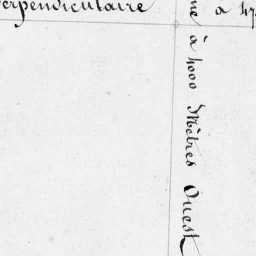 erpendiculaire
à 4000 Mètres Ouest